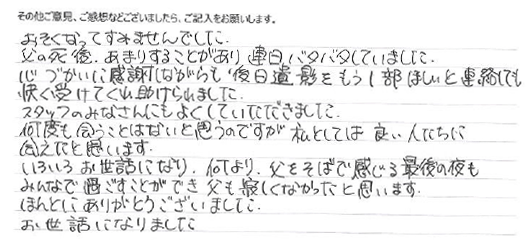 その他ご意見、ご感想などございましたら、ご記入をお願いします。
おそくなってすみませんでした。
父の死後、あまりすることがあり連日バタバタしていました。
心づかいに感謝しながらも後日遺影をもう1部ほしいと連絡しても
快く受けてくれ助けられました。
スタッフのみなさんにもよくしていただきました。
何度も会うことはないと思うのですが私としては良い人たちに
会えたと思います。
いろいろお世話になり、何より、父をそばで感じる最後の夜も
みんなで過ごすことができ父も寂しくなかったと思います。
ほんとにありがとうございました。
お世話になりました